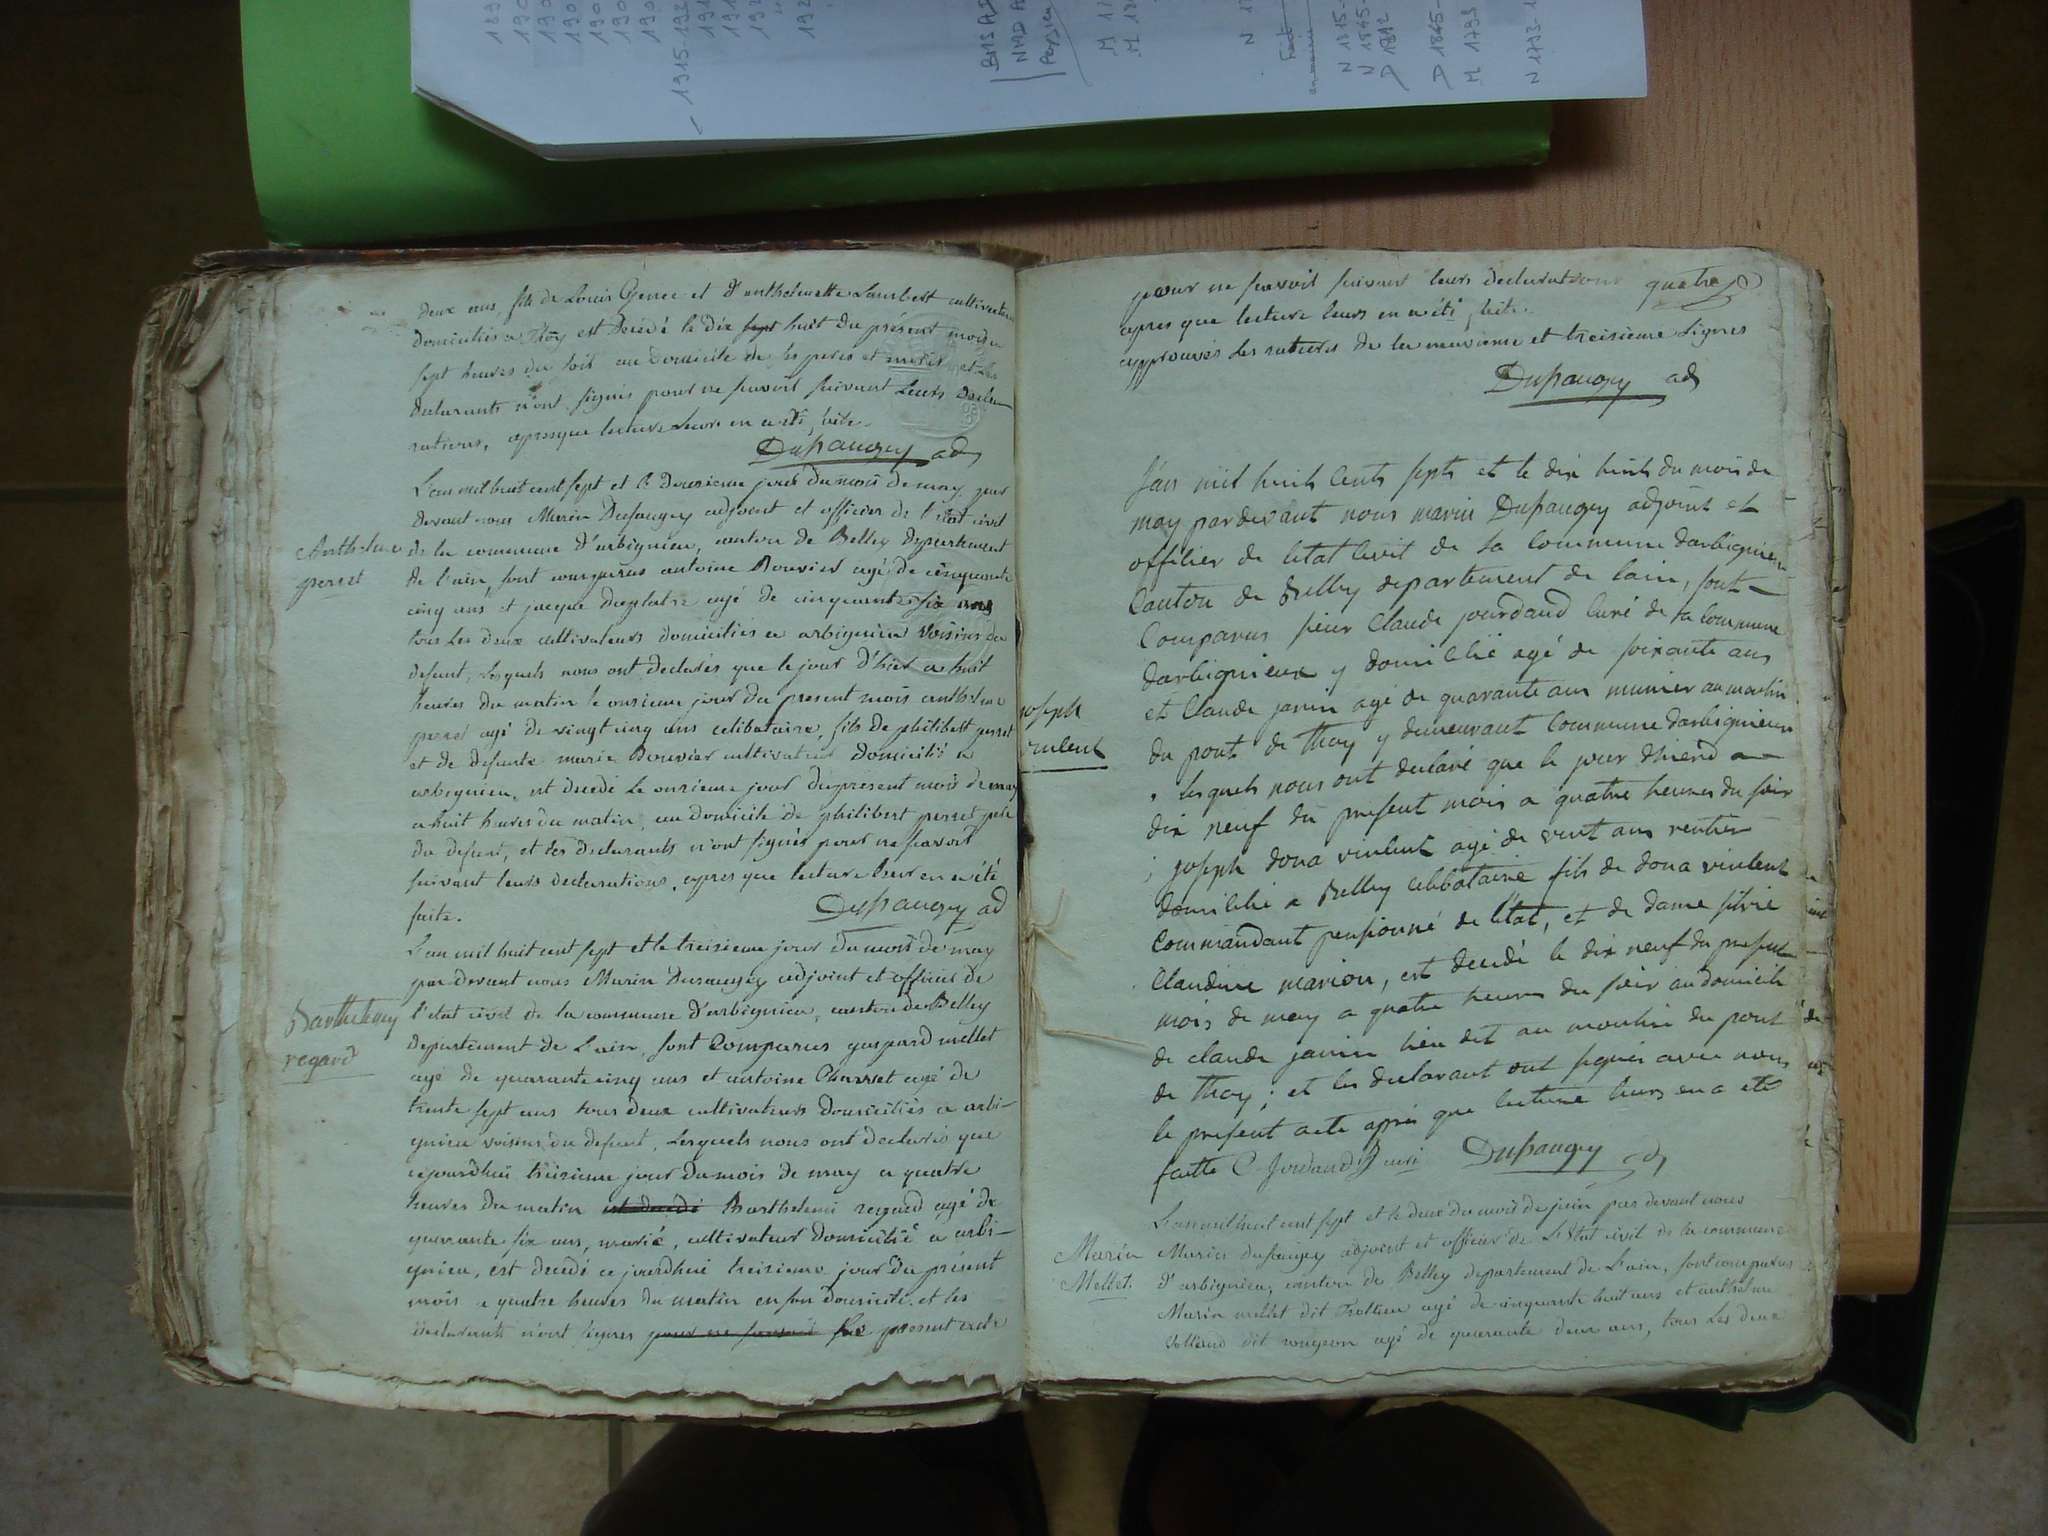 189
190
190
190
190
190
190
1915-192
191
191
192
192
BMS A
NMD A
Paysieu
M 17
M 18
N 17
N 1815-
N 1845-
D 1812
D 1845-
M 1793
N 1793-1
deux ans, fils de Louis Genee et d'anthelmette Lambert cultivateurs
domiciliés a Thoy est décédé le dix sept huit du présent mois a
sept heures du soir au domicile de ses peres et meres et les
declarants n'ont signés pour ne savoir suivant Leurs decla
rations, apres que lecture Leurs en a été faite.
Dusaugey adj
L'an mil huit cent sept et le Douzieme jour du mois de may par
devant nous Marin Dusaugey adjoint et officier de l'état civil
Anthelme
perret
de la commune d'arbignieu, canton de Belley departement
de l'ain, sont comparus antoine Bouvier agé de cinquante
cinq ans et jacque duplatre agé de cinquante six ans
tous Les deux cultivateurs domiciliés a arbignieu voisins du
defunt, Lesquels nous ont declarés que le jour d'hier a huit
heures du matin le onzieme jour du present mois anthelme
perret agé de vingt cinq ans celibataire, fils de philibert perret
et de defunte marie Bouvier cultivateur domicilié a
arbignieu, est decedé Le onzieme jour du present mois de may
a huit heures du matin, au domicile de philibert perret pere
du defunt, et les declarants n'ont signés pour ne savoir
suivant leurs declarations, apres que lecture leur en a été
faite. Dusaugey ad
L'an mil huit cent sept et le treizieme jour du mois de may
par devant nous Marin Dusaugey adjoint et officier de
Barthelemy
regard
l'etat civil de la commune d'arbignieu, canton de Belley
departement de L'ain, sont Comparus gaspard mellet
agé de quarante cinq ans et antoine Charvet agé de
trente sept ans tous deux cultivateurs Domiciliés a arbi-
gnieu voisins du defunt, Lesquels nous ont declarés que
cejourd'hui treizieme jour du mois de may a quatre
heures du matin est decedé Barthelemi regard agé de
quarante six ans, marié, cultivateur domicilié a arbi-
gnieu, est decédé ce jourdhui treizieme jour du présent
mois a quatre heures du matin en son domicile. et les
declarants n'ont signes pour ne savoir le present acte
pour ne savoir suivant leurs declarations quatre
apres que lecture leurs en a été faite.
approuvés Les ratures de la neuvieme et treizieme Lignes
Dusaugey adj
L'an mil huit cents sept et le dix huit du mois de
may pardevant nous marin Dusaugey adjoint et
officier de letat civil de la Commune darbignieu
Canton de Belley departement de lain, sont
Comparus sieur Claude jourdand curé de la commune
darbignieux y domicilié agé de soixante ans
joseph
vincent
et Claude janin agé de quarante ans munier au moulin
du pont de Thoy y demeurant Commune darbignieu
lesquels nous ont declaré que le jour dhierd a
dix neuf du present mois a quatre heures du soir
joseph dona vincent agé de vint ans rentier
domicilié a Belley celibataire fils de dona vincent
Commandant pensionné de l'état, et de dame silvie
Claudine marion, est decedé le dix neuf du present
mois de may a quatre heures du soir au domicile
de claude janin lieu dit au moulin du pont
de Thoy; et les declarant ont signés avec nous
le present acte aprés que lecture leurs en a été
faitte C. Jourdand Curé Dusaugey adj
L'an mil huit cent sept et le deux du mois de juin par devant nous
Marin
Mellet.
Marin dusaugey adjoint et officier de L'état civil de la commune
d'arbignieu, canton de Belley departement de L'ain, sont comparus
Marin mellet dit agé de cinquante huit ans et anthelme
dit rougeon agé de quarante deux ans, tous Les deux